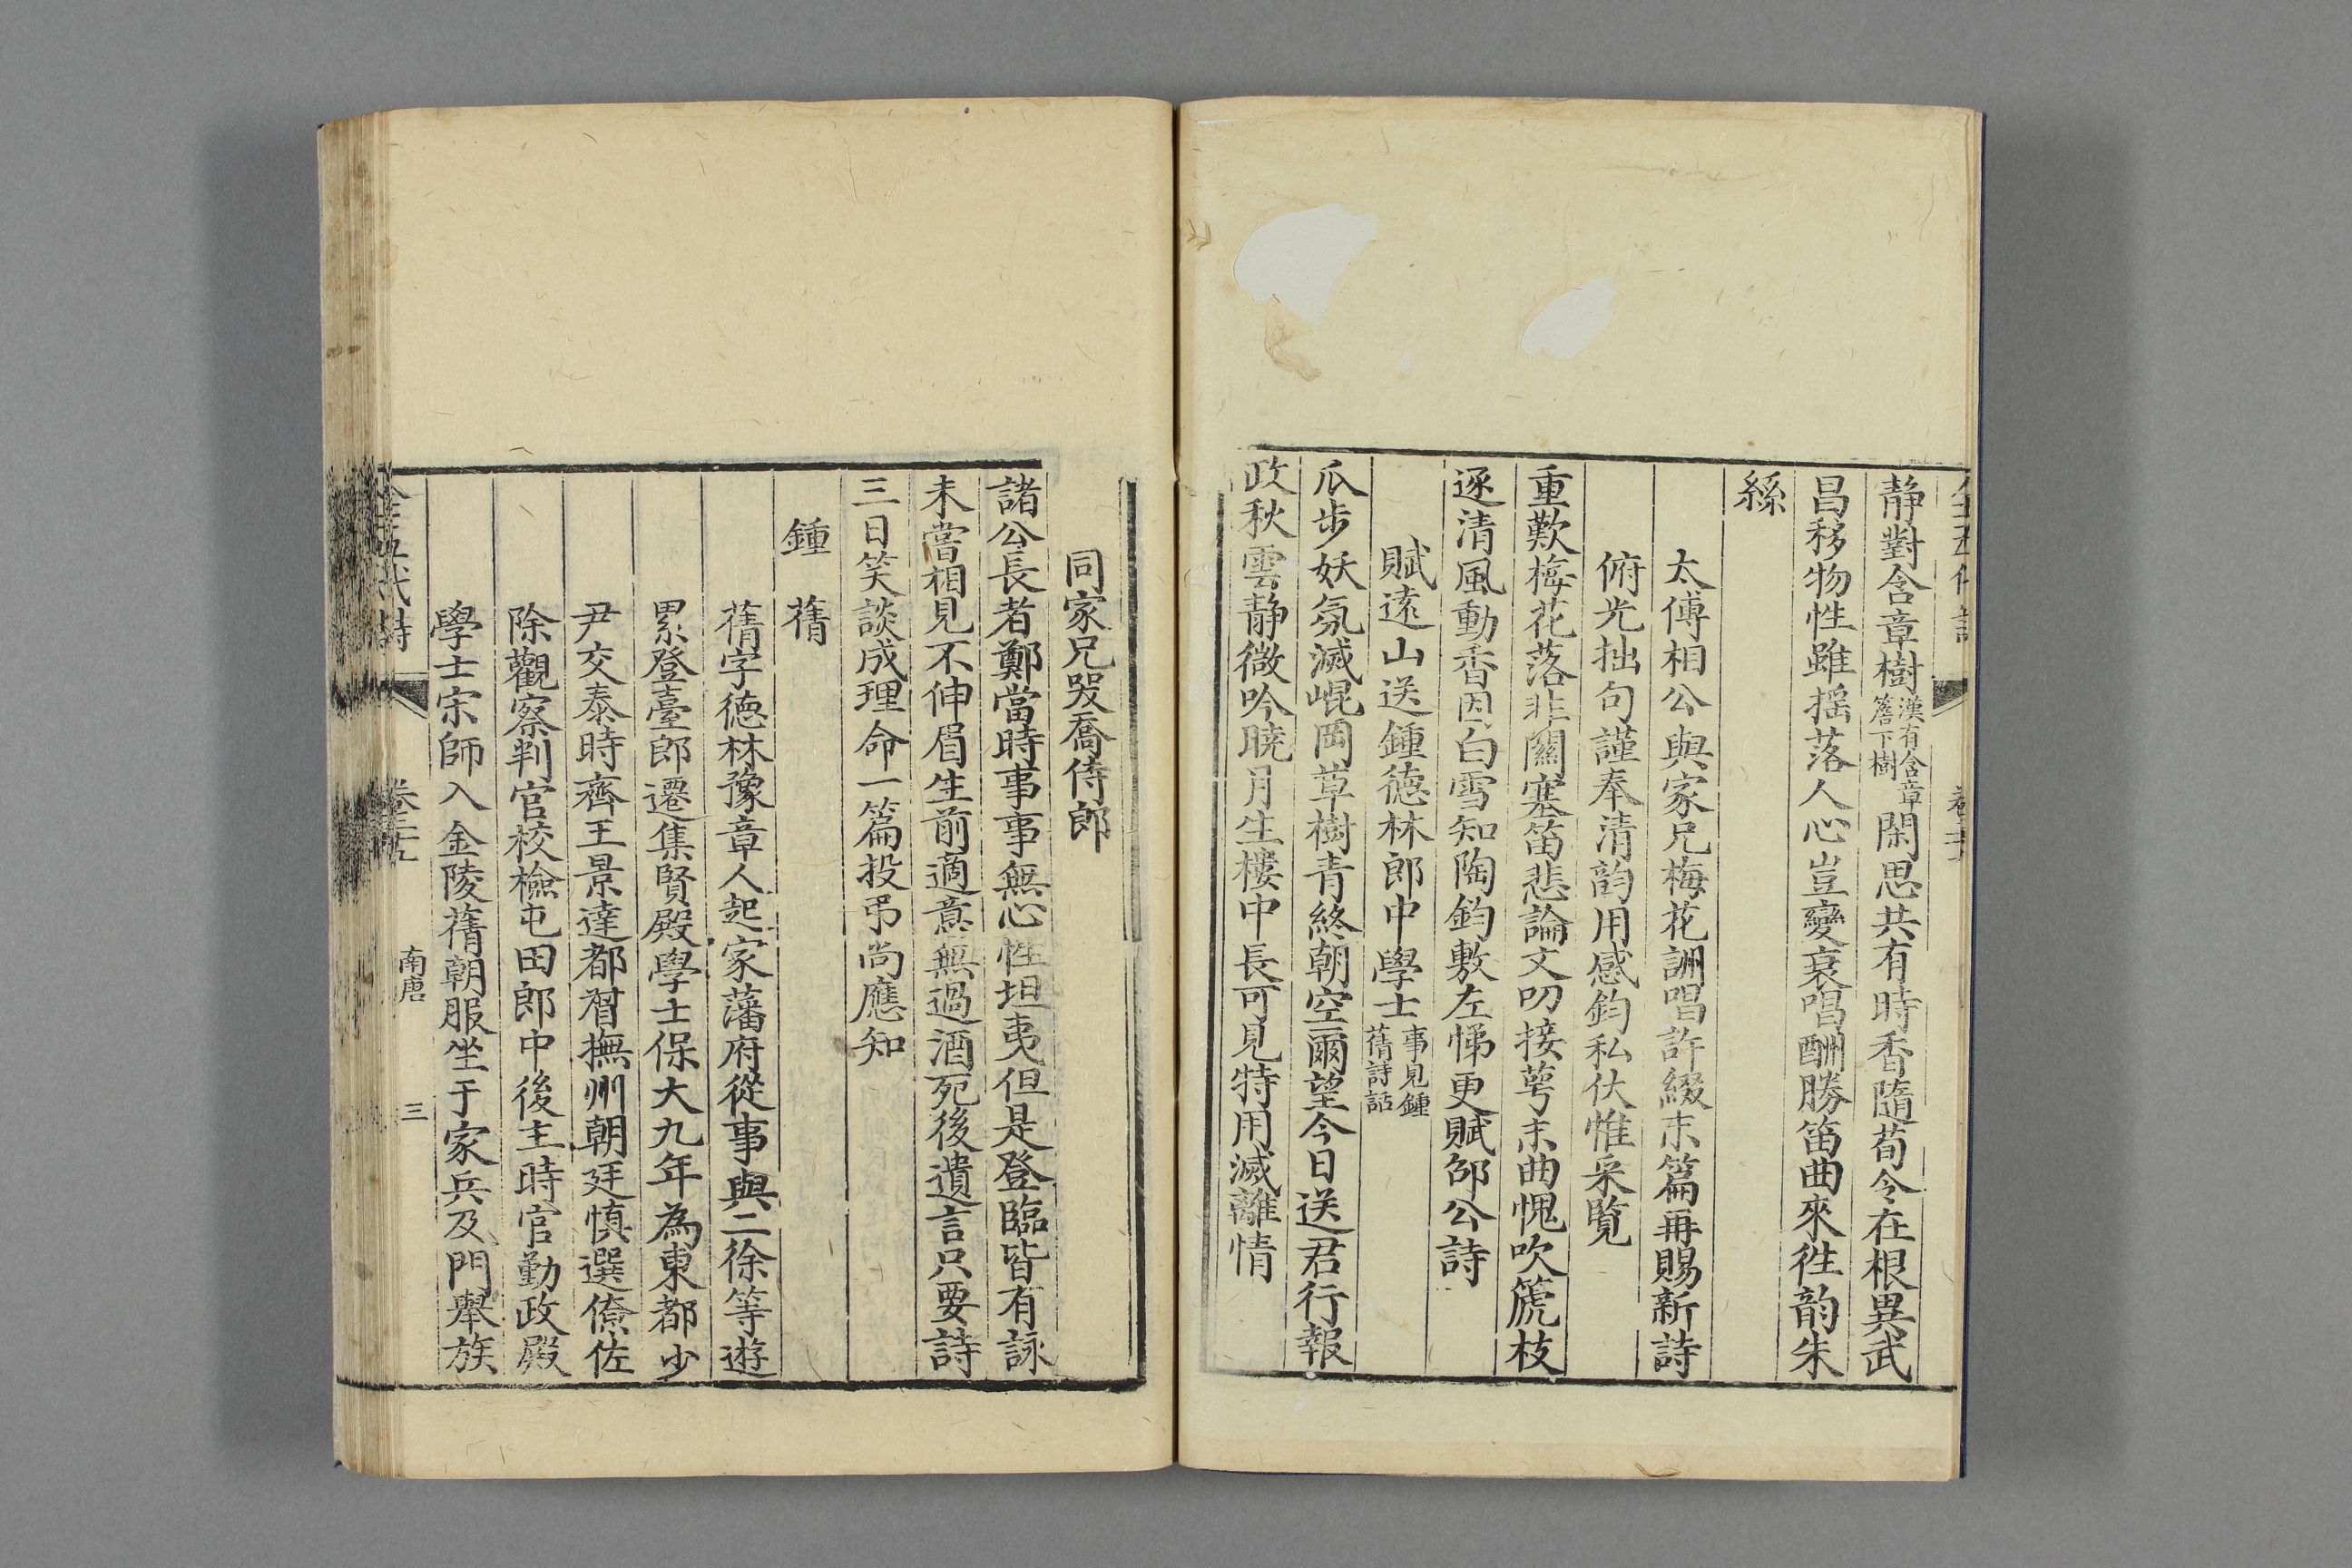 靜對含章樹漢有含章簷下樹閑思共有時香隨荀令在根異武
昌移物性雖摇落人心豈變衰唱酬勝笛曲來徃韵朱
絲
太傅相公與家兄梅花詶唱許綴末篇再賜新詩
俯光拙句謹奉清韵用感鈞私伏惟采覧
重歎梅花落非關塞笛悲論文叨接萼末曲愧吹篪枝
逐清風動香因白雪知陶鈞敷左悌更賦邵公詩
賦遠山送鍾德林郎中學士事見鍾蒨詩話
瓜步妖氛滅崐岡草樹青終朝空爾望今日送君行報
政秋雲靜微吟曉月生樓中長可見特用滅離情
同家兄哭喬侍郎
諸公長者鄭當時事事無心性坦夷但是登臨皆有詠
未嘗相見不伸眉生前適意無過酒死後遺言只要詩
三日笑談成理命一篇投弔尚應知
鍾蒨
蒨字德林豫章人起家藩府從事與二徐等遊
累登臺郎遷集賢殿學士保大九年為東都少
尹交泰時齊王景達都督撫州朝廷慎選僚佐
除觀察判官校檢屯田郎中後主時官勤政殿
學士宋師入金陵蒨朝服坐于家兵及門舉族
全五代詩 卷三十五 南唐 三